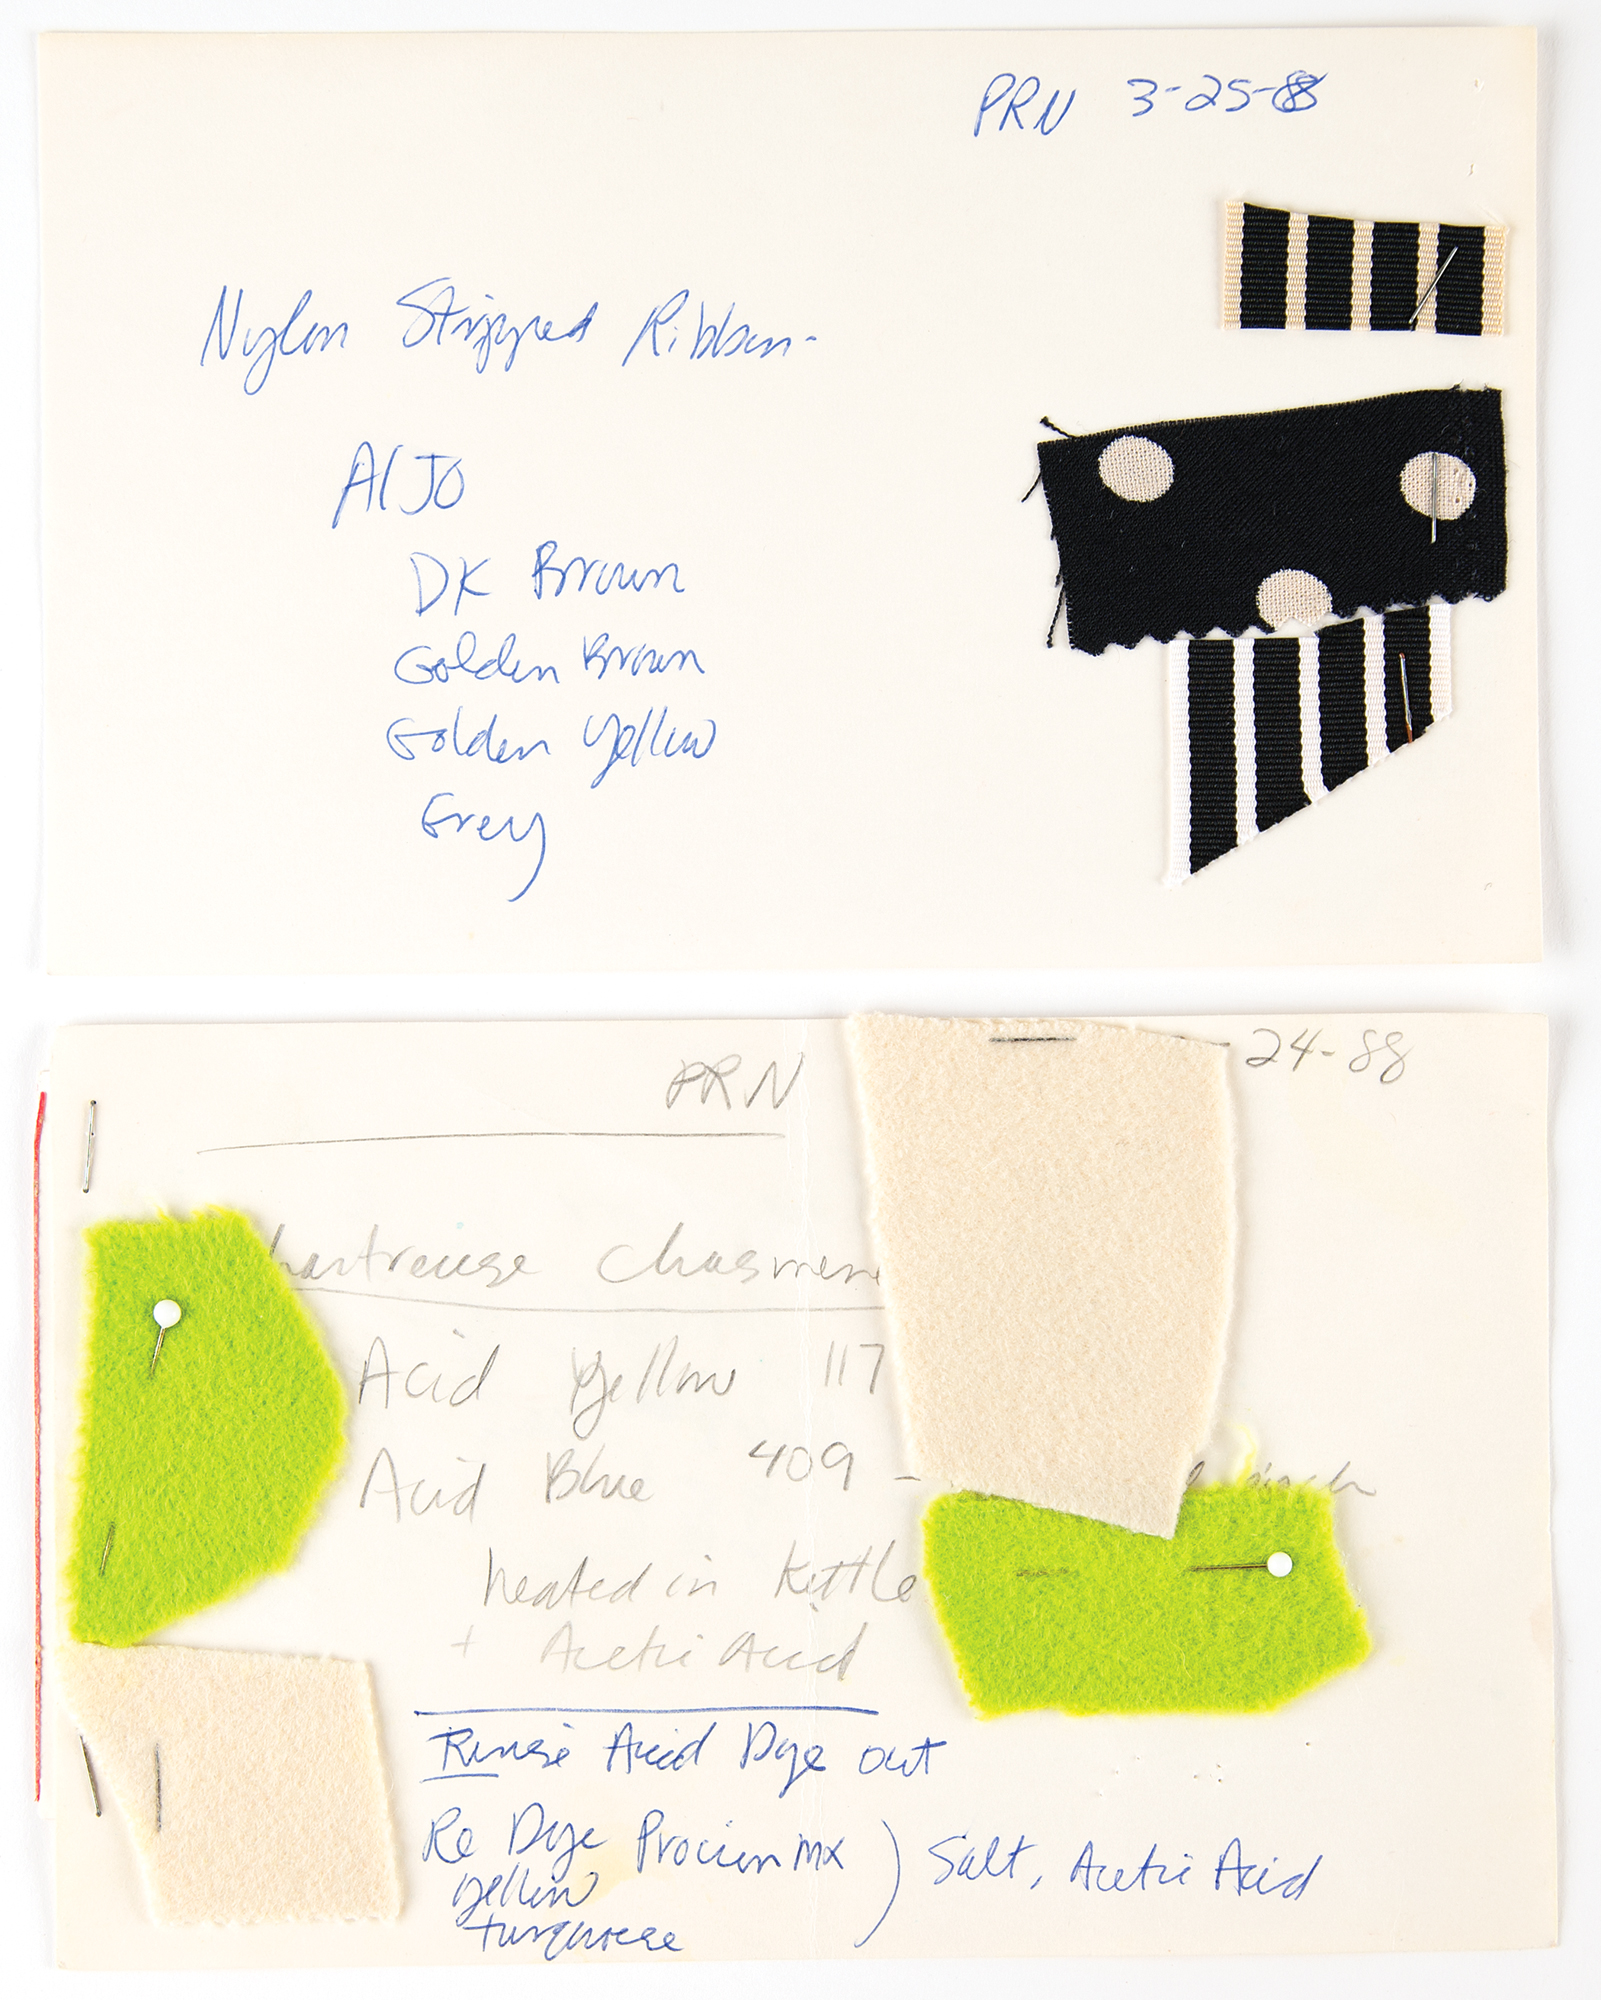 PRN 3-25-88
Nylon Stripped Ribbon-
AlJO
DK Brown
Golden Brown
Golden Yellow
Grey
PRN 24-88
hartreuse Chasmere
Acid Yellow 117
Acid Blue 409 -
heated in Kettle
+ Acetic Acid
Rinse Acid Dye out
Re Dye Procion MX ) Salt, Acetic Acid
yellow
turquoise